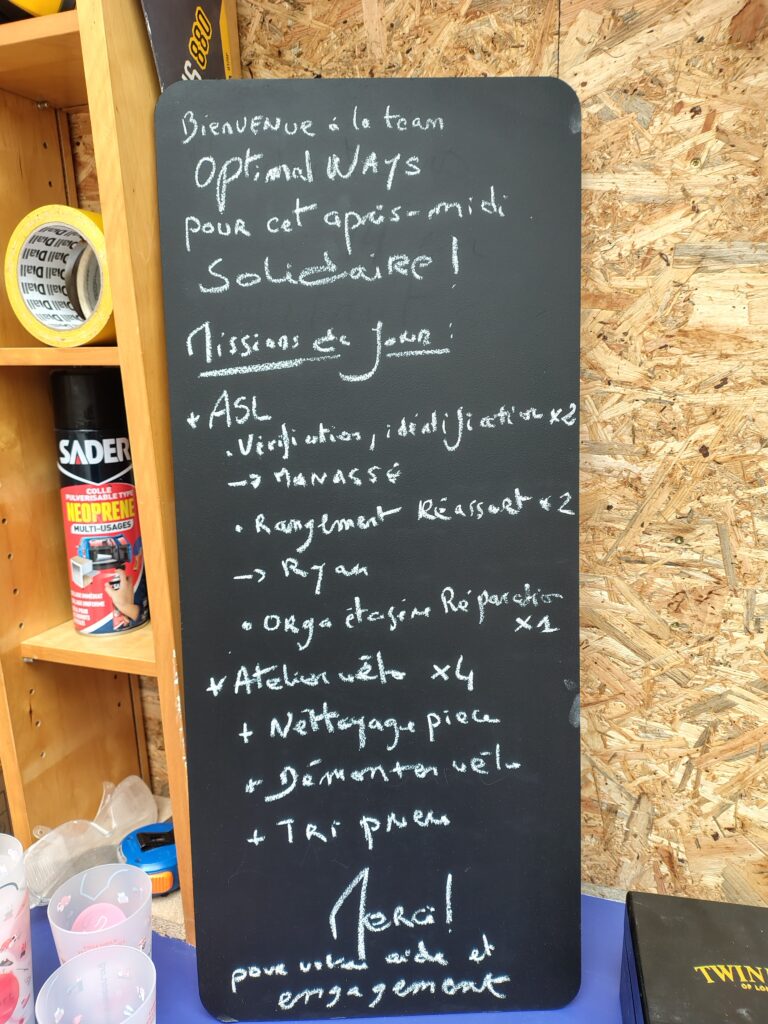 BIENVENUE à la team
Optimal WAYS
pour cet après-midi
Solidaire !
Missions du Jour :
* ASL
. Vérification, identification x2
-> MANASSÉ
. Rangement Réassort x2
-> Ryan
. ORGA étagère Réparation
x1
* Atelier vélo x4
+ Nettoyage piece
+ Démonter vélo
+ TRI pneu
Merci !
pour votre aide et
engagement
880
Diall Diall
Diall Diall
SADER
COLLE
PULVERISABLE TYPE
NEOPRENE
MULTI-USAGES
TWIN
OF LO